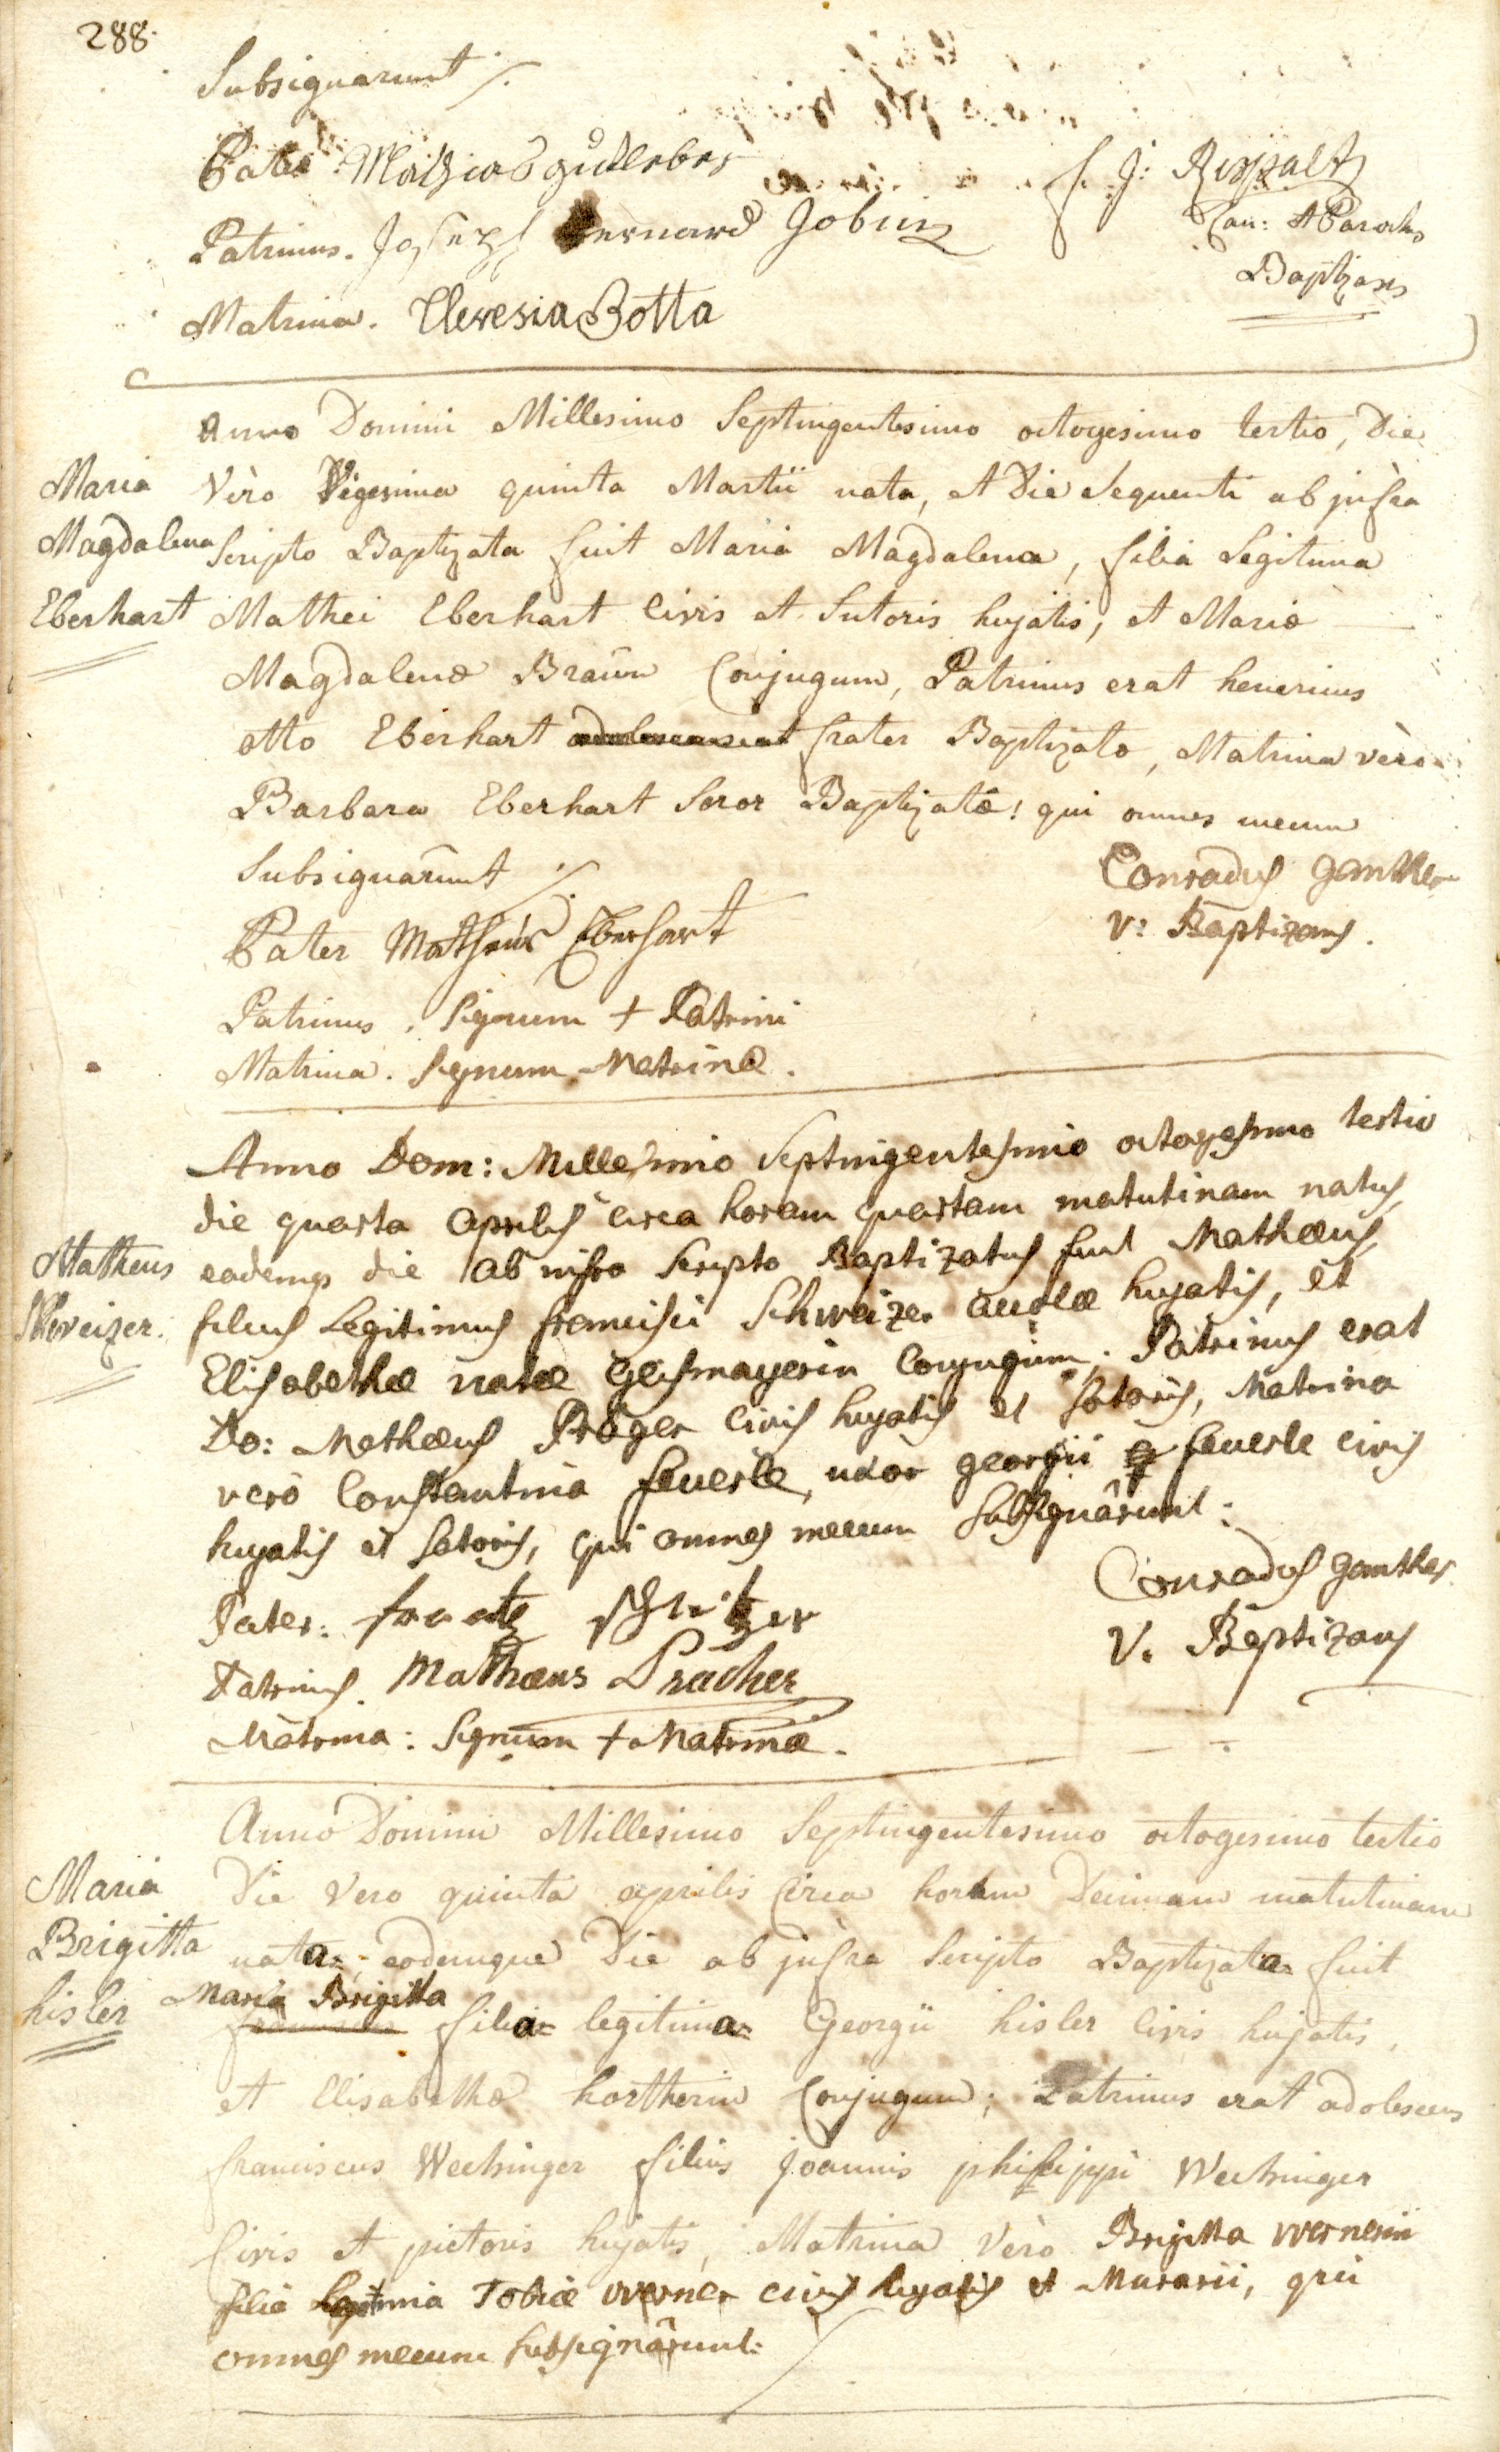 288.
Subsignarunt ·/.
Pater. Mathias gutleber
Patrinus. Joseph Bernard Gobin
Matrina. Theresia Botta
f. J:
Can: A Parochs
Baptizans
Anno Domini Millesimo Septingentesimo octogesimo tertio, Die
Maria
Vèro Vigesima quinta Martii nata, et Die Sequenti ab jnfra
Magdalena
Scripto Baptizata fuit Maria Magdalena, filia Legitima
Eberhart
Mathei Eberhart Civis et Sutoris hujatis, et Mariæ
Magdalenæ Braün Conjugum, Patrinus erat henericus
otto Eberhart frater Baptizatæ, Matrina vèro
Barbara Eberhart Soror Baptizatæ! qui omnes mecum
Subsignârunt ·/.
Conradus ganther
v: Baptizans.
Pater Matheus Eberhart
Patrinus. Signum + Patrini
Matrina. Signum Matrinæ.
Anno Dom: Millesimo Septingentesimo octogesimo tertio
die quarta Aprilis circa horam quartam matutinam natus,
Matheus
eademq die ab infra scripto Baptizatus fuit Mathæus,
Schweizer.
filius Legitimus francisci Schweizer aucolæ hujatis, et
Elisabethæ natæ Geismayerin Conjugum; Patrinus erat
Do: Mathæus Prager civis hujatis et satoris, Matrina
verò Constantina feuerle, uxor georgii feuerle civis
hujatis et satoris, qui omnes mecum subsignârunt:
Conradus ganther
V. Baptizans
Pater: frantz
Patrinus. Mathæus Pracher
Matrina: Signum + Matrinæ.
Anno Domini Millesimo Septingentesimo octogesimo tertio
Maria
Die Vero quinta aprilis Circa horam Decimam matutinam
Brigitta
nata, eodemque Die ab jnfra Scripto Baptizata fuit
hisler
Maria Brigitta
filia legitima Georgii hisler Civis hujatis,
et Elisabethæ hortherin Conjugum; Patrinus erat adolescens
franciscus Wechinger filius Joannis philippi Wechinger
Civis et pictoris hujatis, Matrina Vèro Brigitta wernerin
filia Legitimia Tobiæ werner civis hujatis et Murarii, qui
omnes mecum subsignârunt: